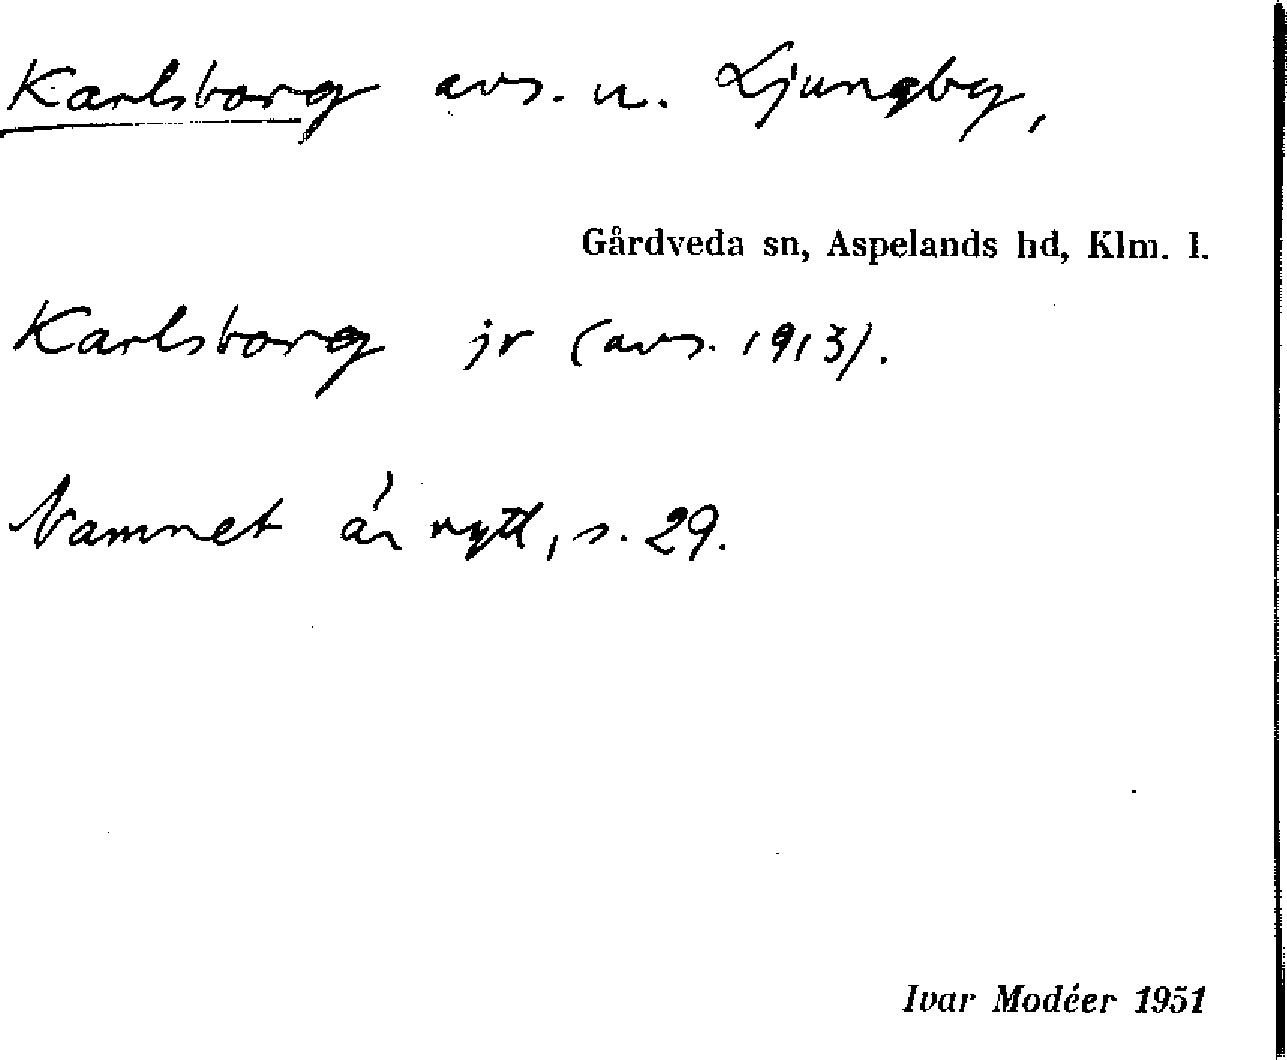 Karlsborg avs. u. Ljungby,
Gårdveda sn, Aspelands hd, Klm. l.
Karlsborg jr (avs. 1913).
Namnet är nytt, s. 29.
Ivar Modéer 1951